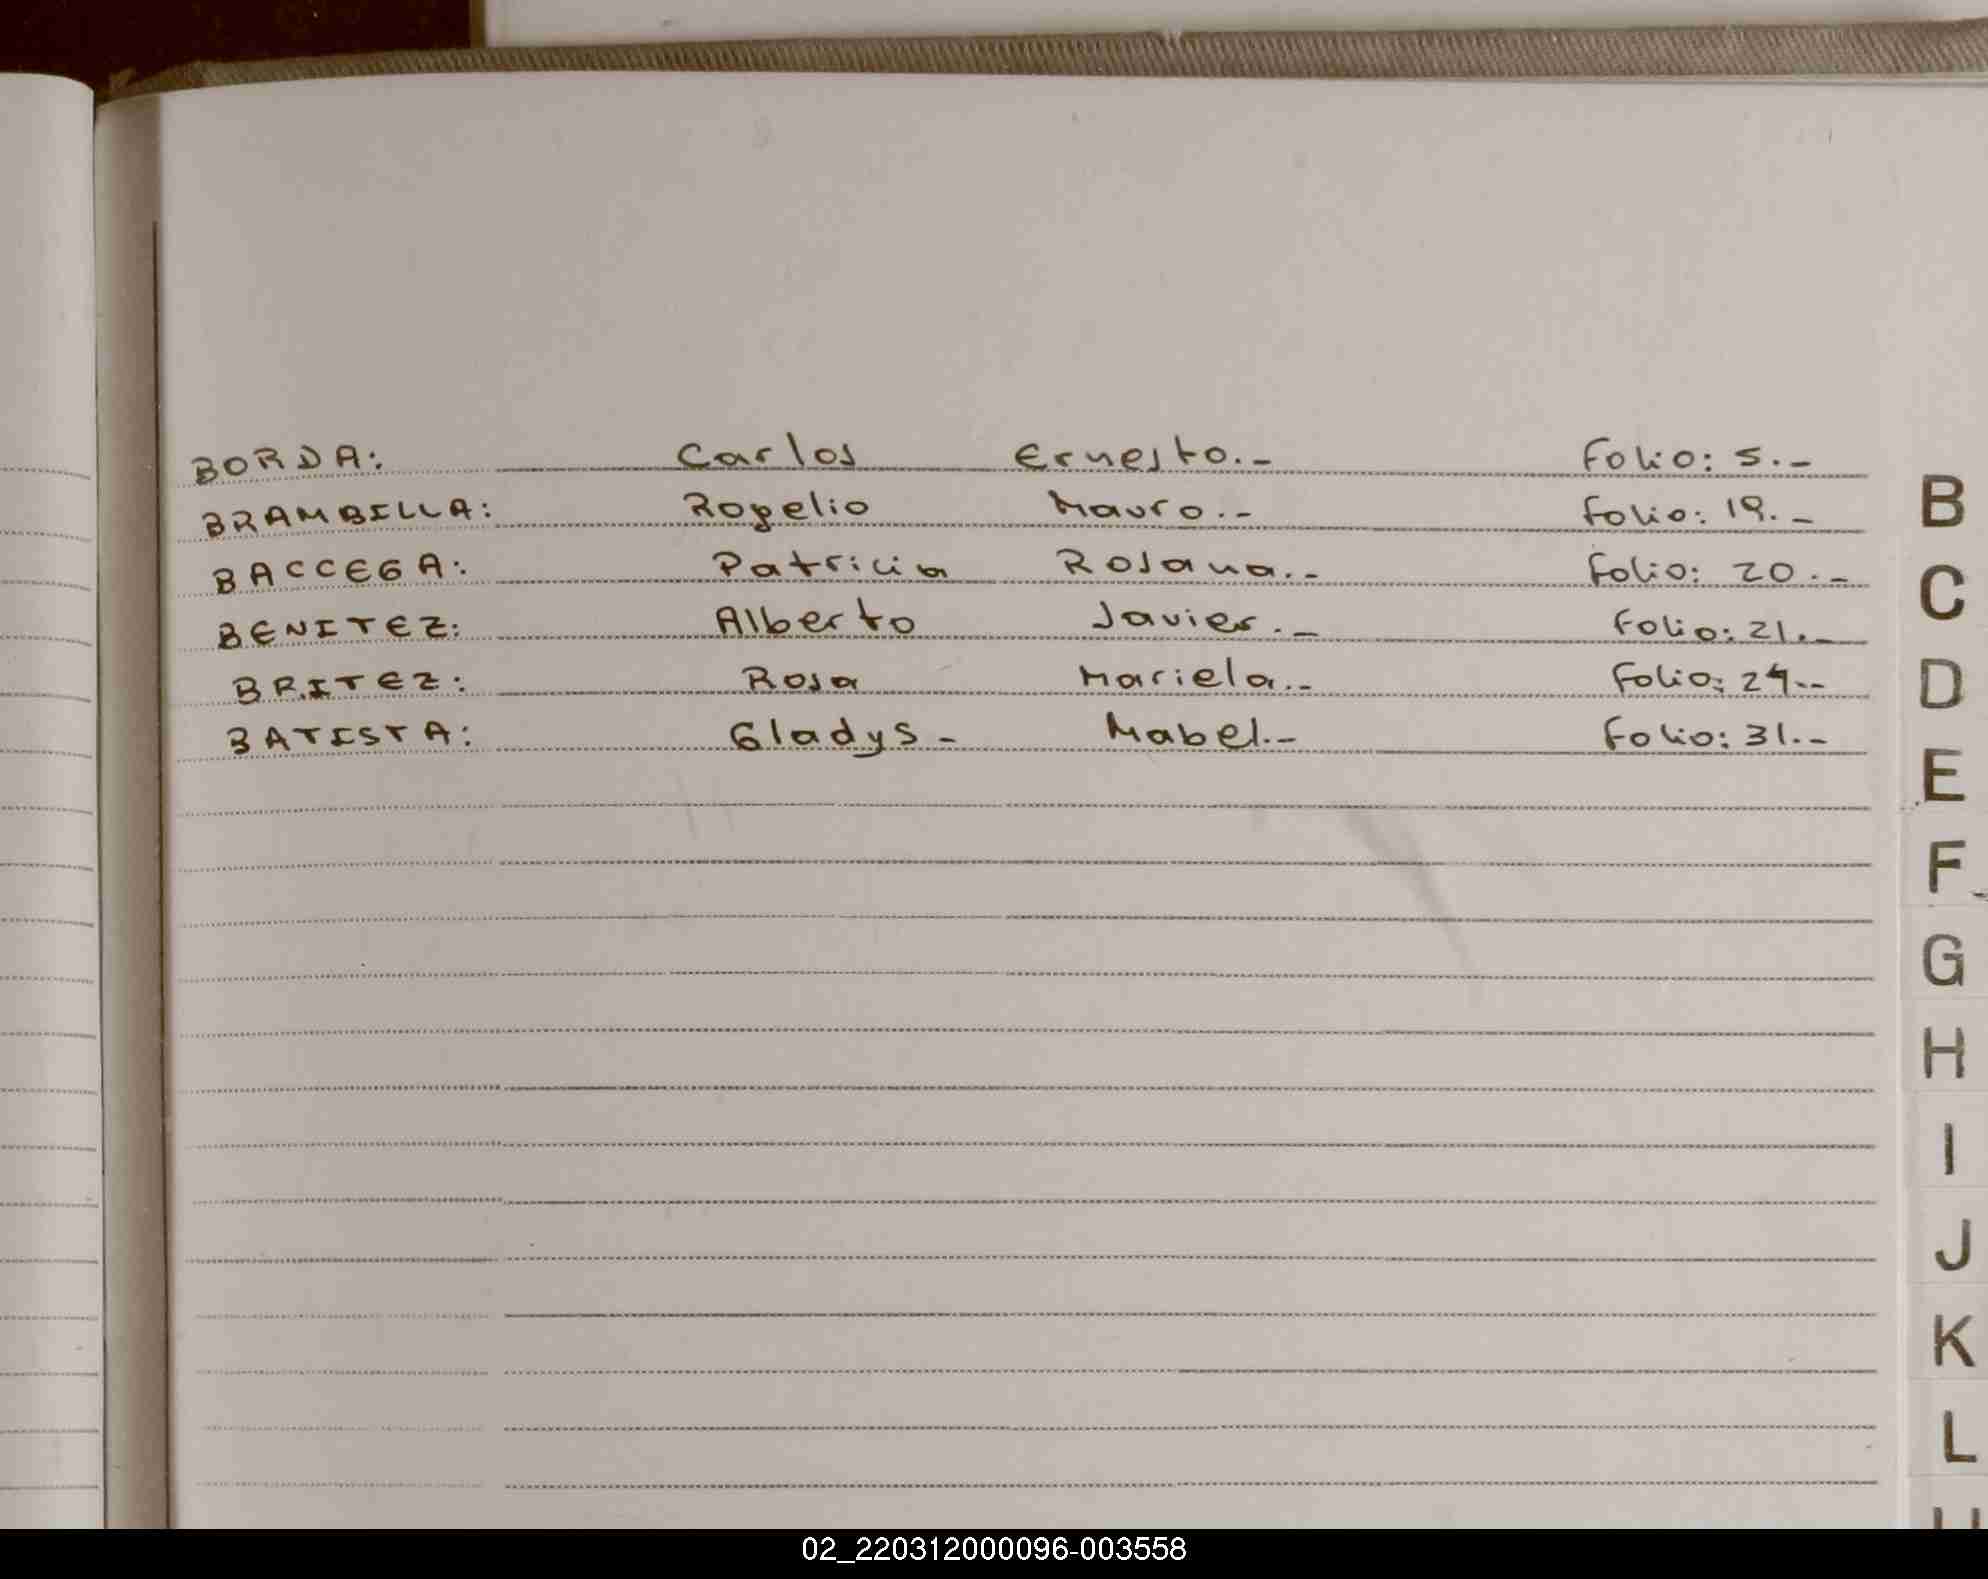 BORDA: Carlos Ernesto.- Folio: 5.-
BRAMBILLA: Rogelio Mauro.- Folio: 19.-
BACCEGA: Patricia Rosana.- Folio: 20.-
BENITEZ: Alberto Javier.- Folio: 21.-
BRITEZ: Rosa Mariela.- Folio: 24.-
BATISTA: Gladys - Mabel.- Folio: 31.-
B
C
D
E
F
G
H
I
J
K
L
02_220312000096-003558